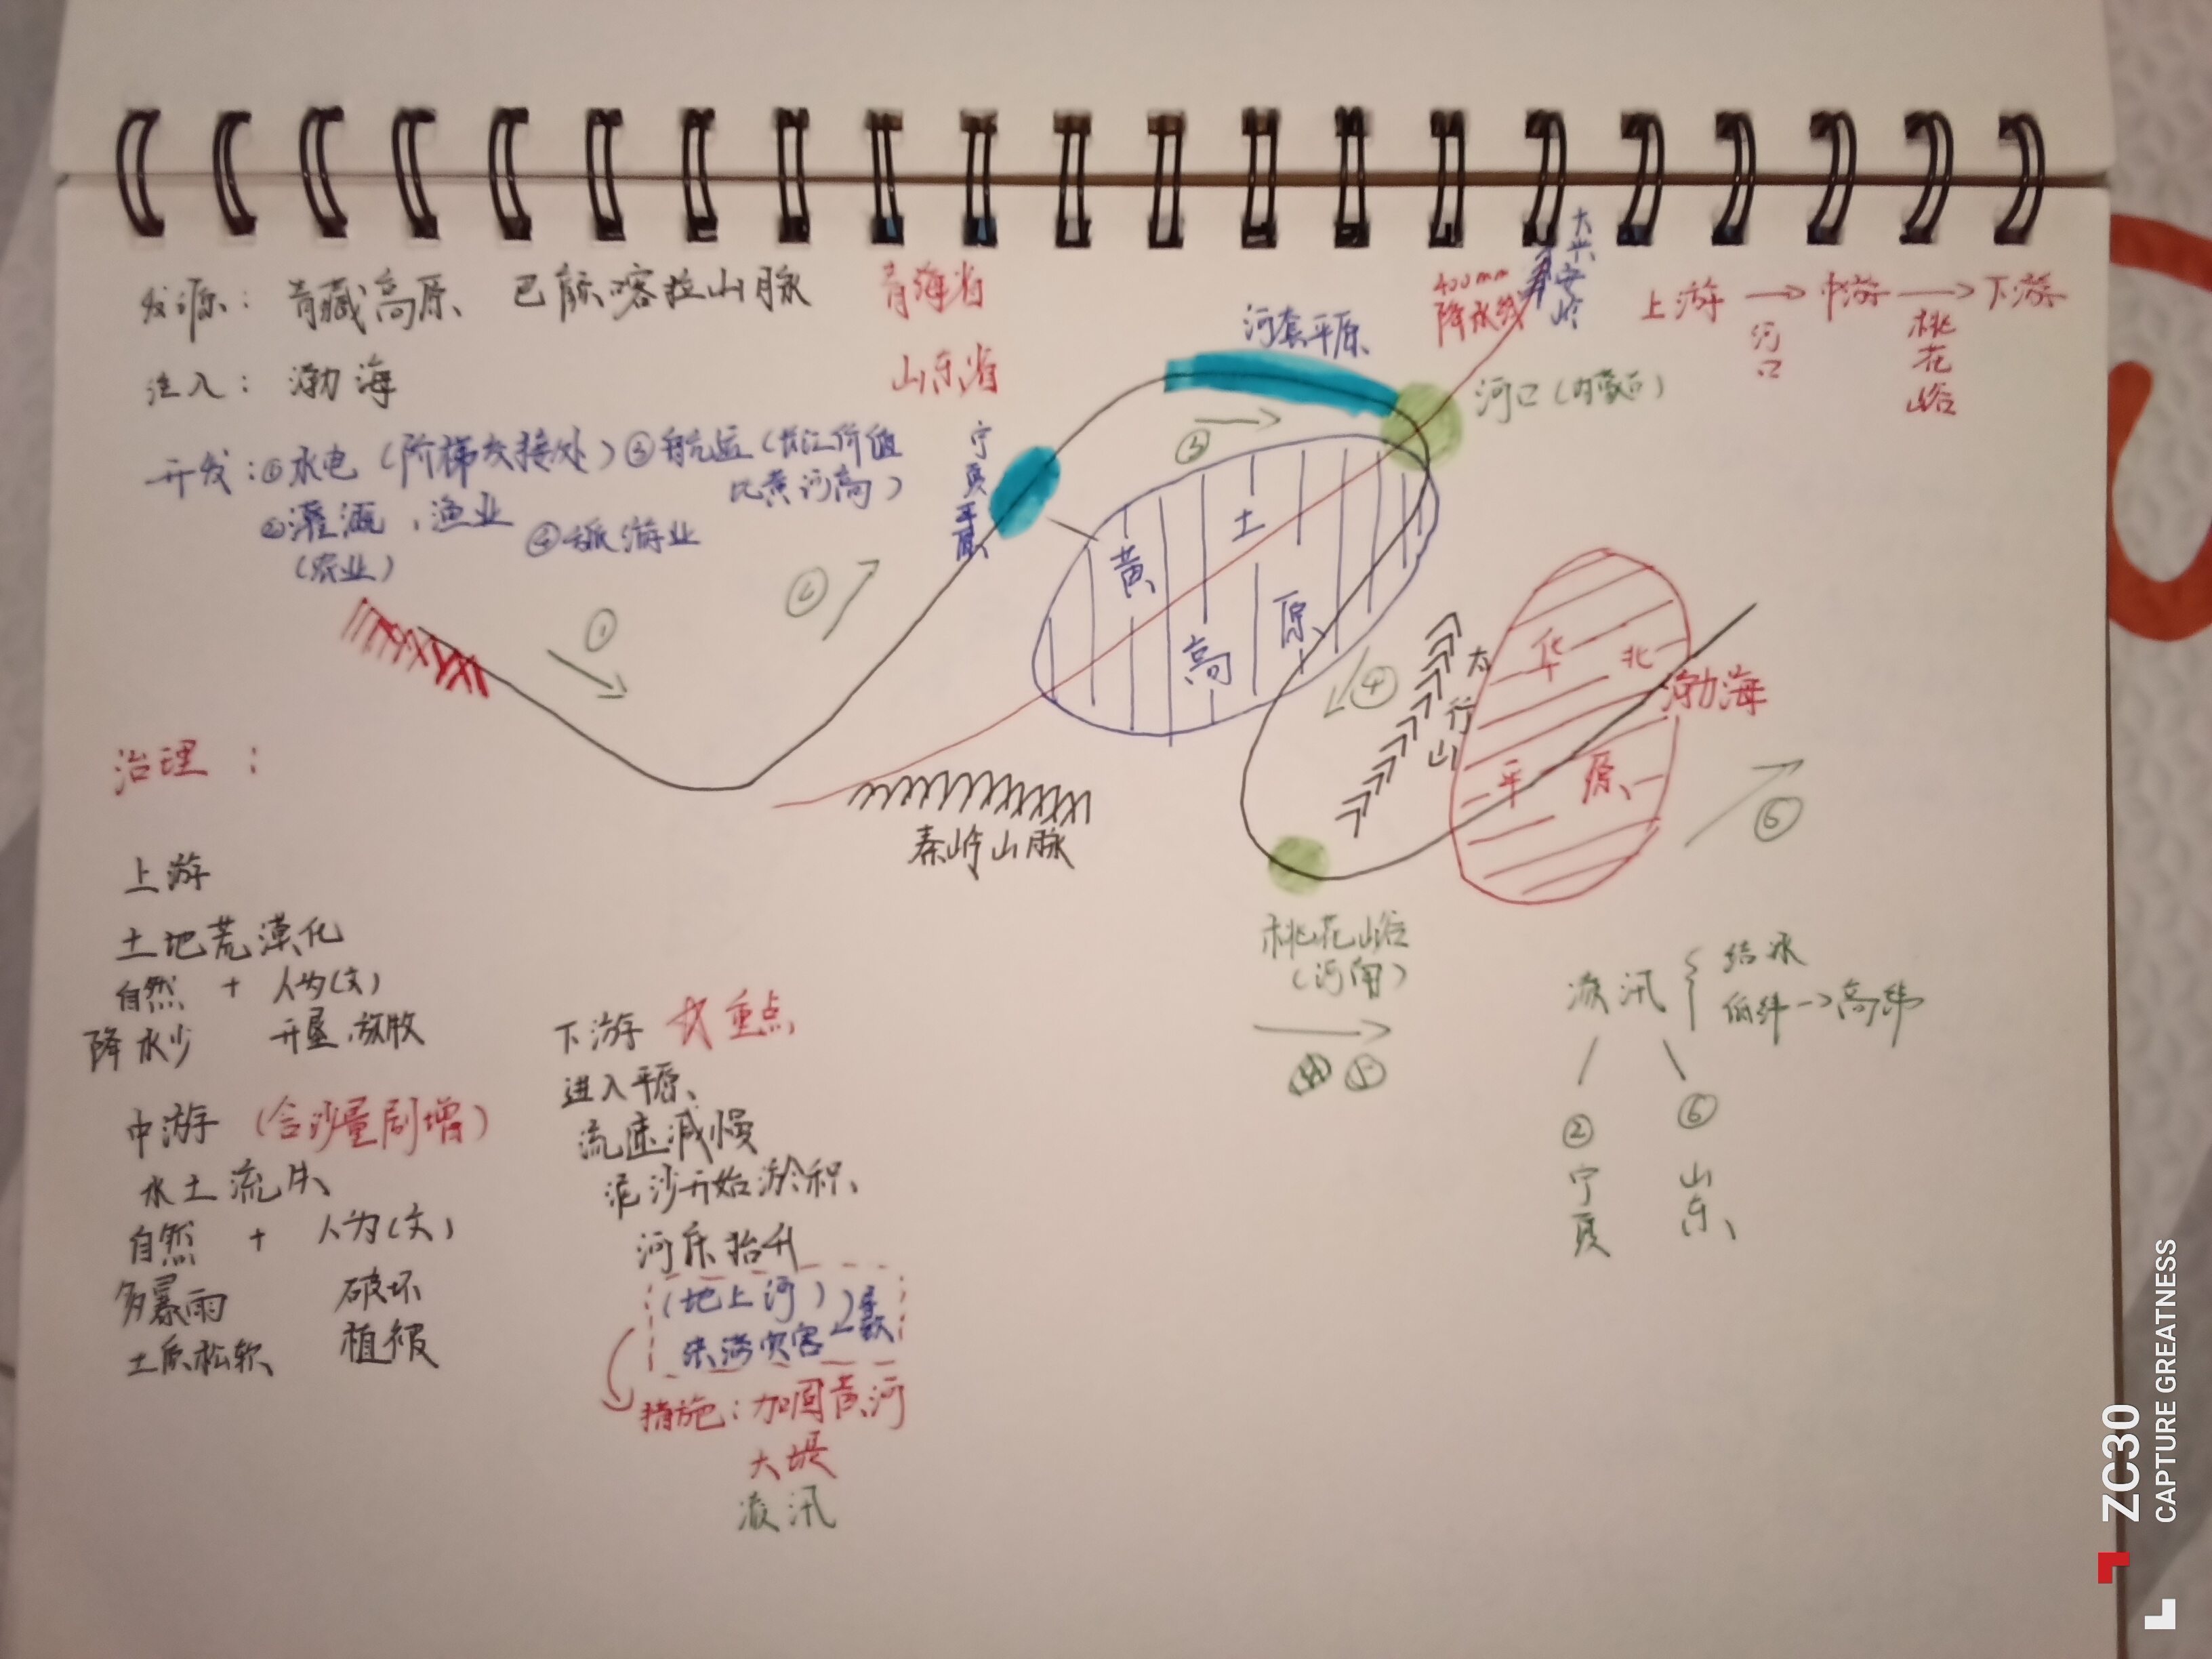 发源：青藏高原、巴颜喀拉山脉 青海省
注入：渤海 山东省
开发：①水电（阶梯交接处）③航运（长江价值
比黄河高）
②灌溉，渔业 ④旅游业
（农业）
宁夏平原
河套平原
400mm
降水线
大兴安岭
上游 → 中游 → 下游
河口
桃花峪
河口（内蒙古）
③
②
①
黄土高原
④
太行山
华北平原
渤海
⑥
秦岭山脉
桃花峪
（河南）
⑤
凌汛
结冰
低纬→高纬
② ⑥
宁夏
山东
治理：
上游
土地荒漠化
自然 + 人为（文）
降水少 开垦、放牧
中游（含沙量剧增）
水土流失
自然 + 人为（文）
多暴雨 破坏
土质松软 植被
下游 重点
进入平原、
流速减慢
泥沙开始淤积、
河床抬升
（地上河）导致
洪涝灾害
措施：加固黄河
大堤
凌汛
ZC30
CAPTURE GREATNESS